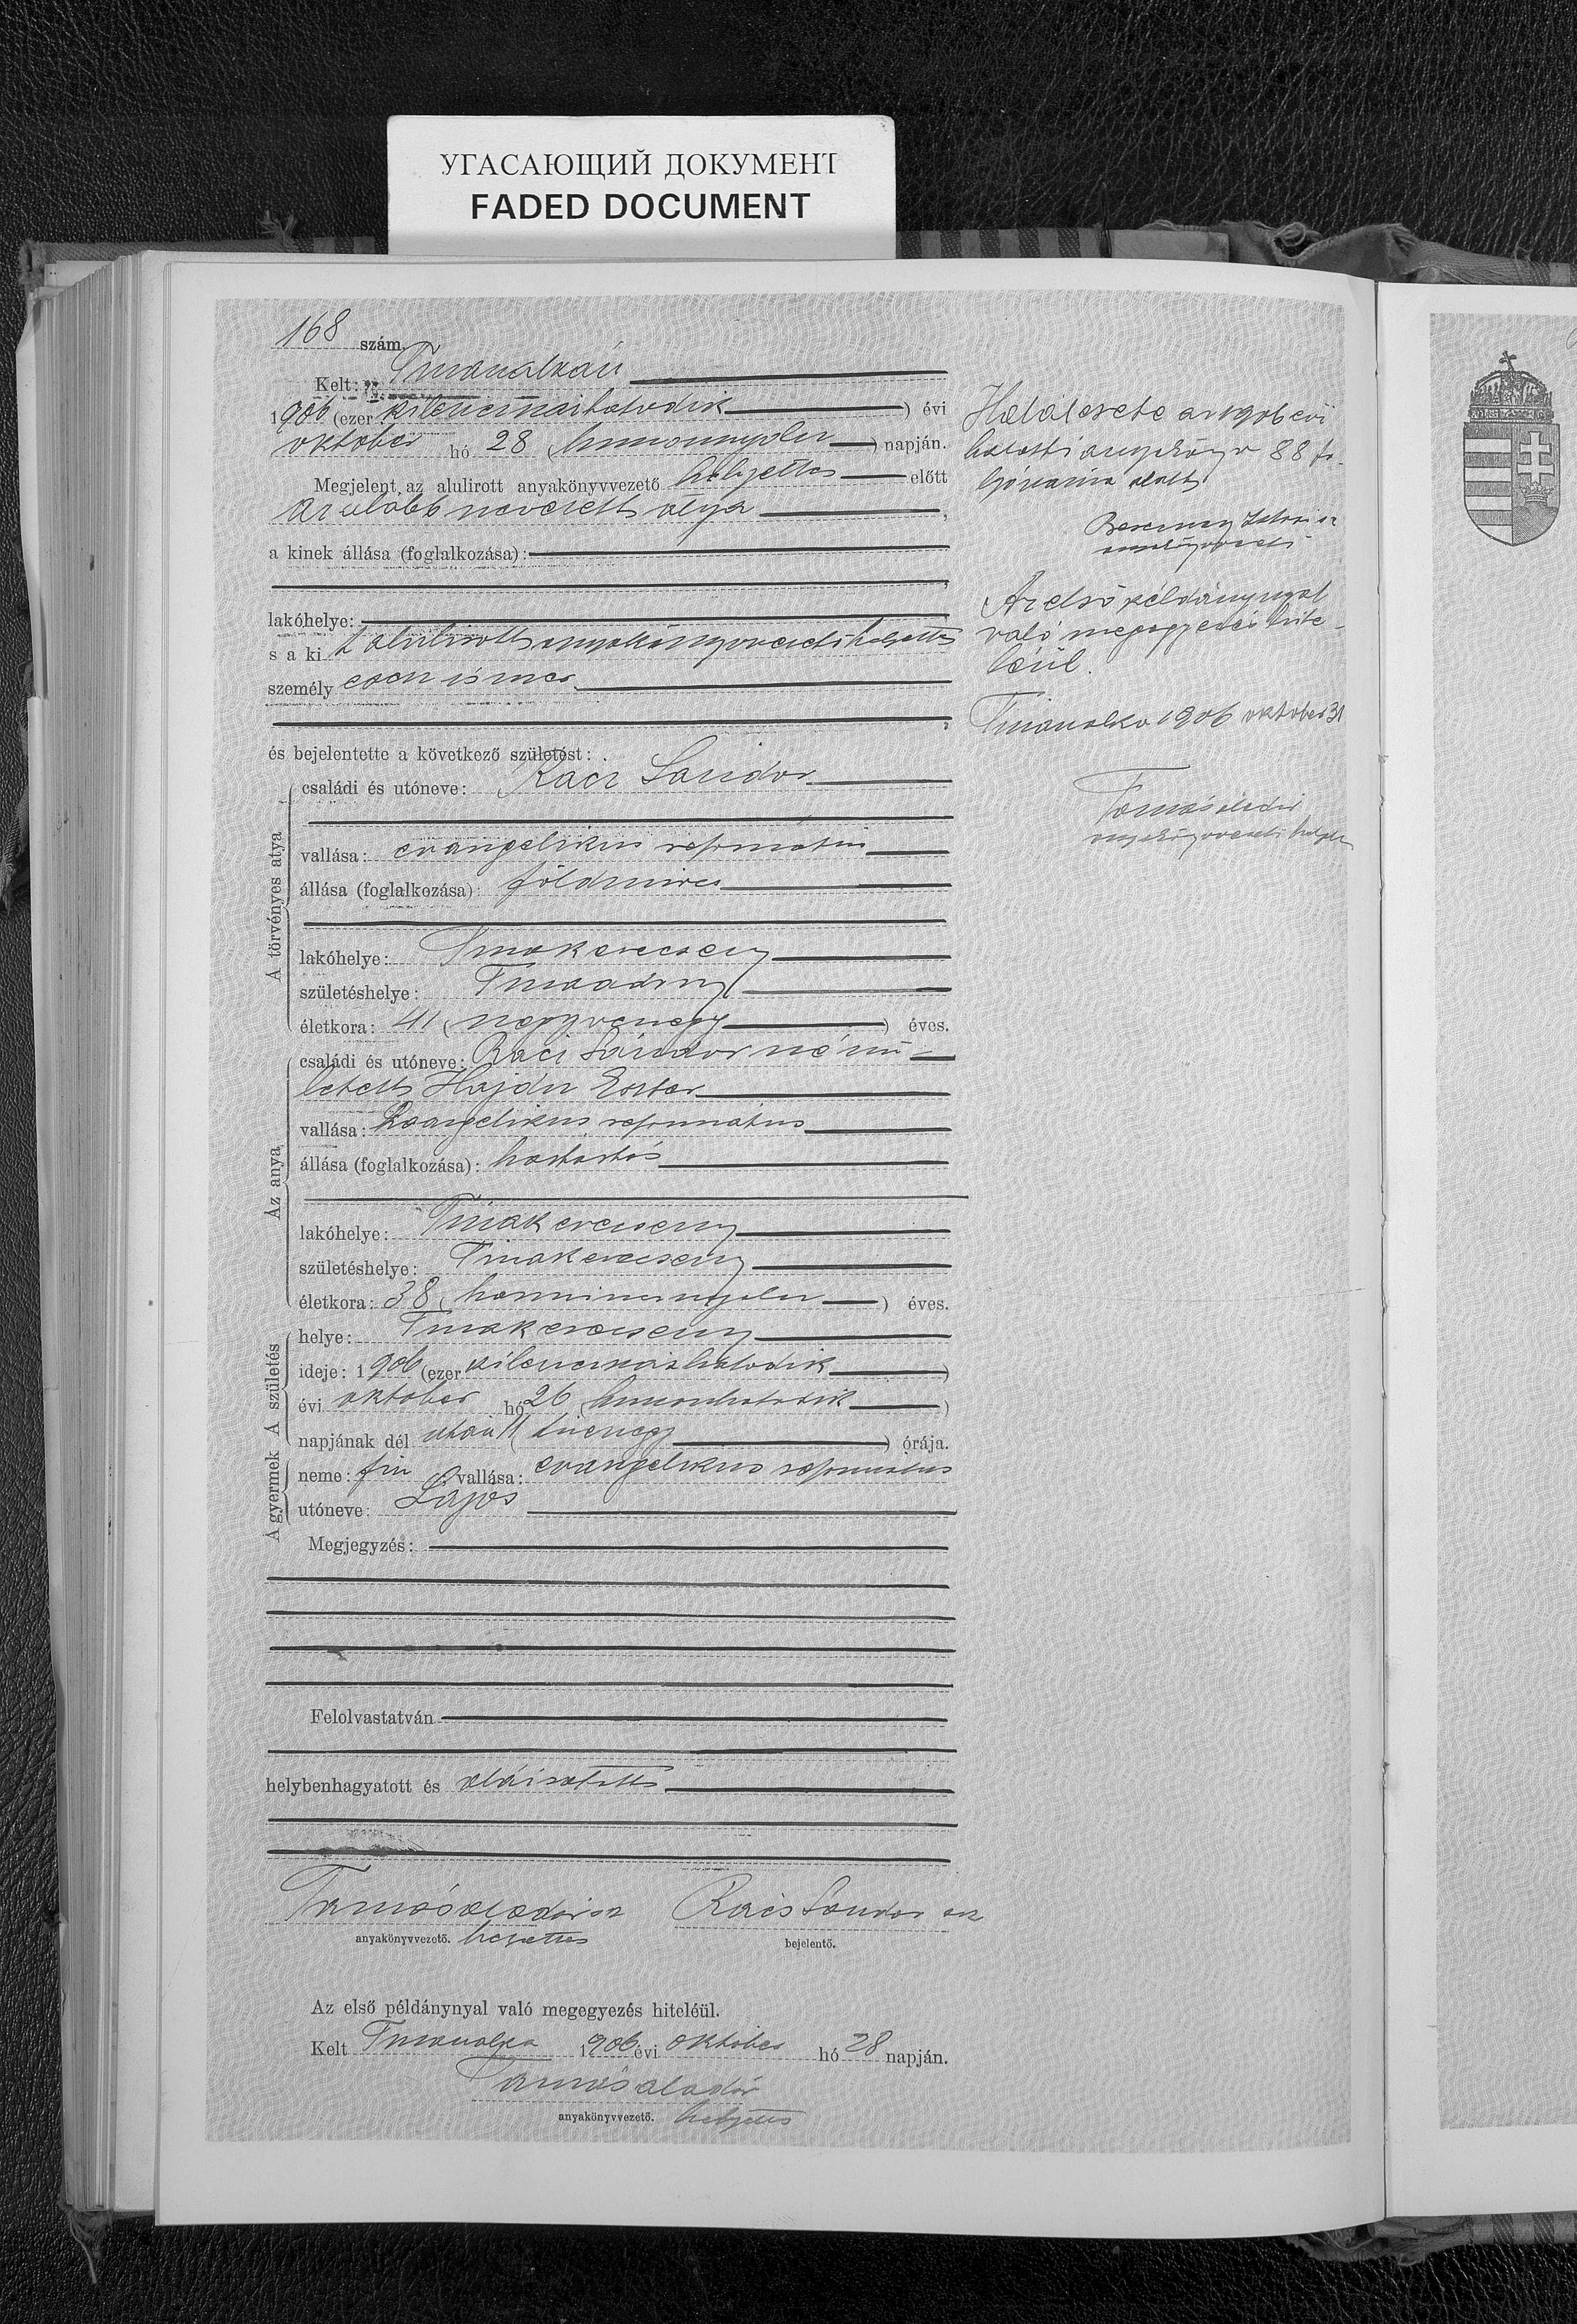 УГАСАЮЩИЙ ДОКУМЕНТ
FADED DOCUMENT
168 szám.
Kelt:
1906 (ezer kilencszázhatodik) évi
október hó 28 (huszonnyolcz) napján.
Megjelent az alulirott anyakönyvvezető helyettes előtt
az alább nevezett atya,
a kinek állása (foglalkozása):
lakóhelye:
s a ki t alulirott anyakönyvvezető helyettes
személy esen ismer
és bejelentette a következő születést:
A törvényes atya
családi és utóneve: Rácz Sándor
vallása: evangelikus református
állása (foglalkozása): földmives
lakóhelye:
születéshelye:
életkora: 41 (negyvenegy) éves.
Az anya
családi és utóneve: Rácz Sándorné szü-
letett Hajdu Eszter
vallása: Evangelikus református
állása (foglalkozása): háztartás
lakóhelye:
születéshelye:
életkora: 38 (harmincznyolcz) éves.
A születés
helye:
ideje: 1906 (ezer kilencszázhatodik)
évi október hó 26 (huszonhatodik)
napjának dél után 11 (tizenegy) órája.
A gyermek
neme: fiu vallása: evangelikus református
utóneve: Lajos
Megjegyzés:
Felolvastatván
helybenhagyatott és aláiratott
Tamás Aladár Rácz Sándor
anyakönyvvezető. helyettes bejelentő.
Az első példánynyal való megegyezés hiteléül.
Kelt 1906 évi október hó 28 napján.
Tamás Aladár
anyakönyvvezető. helyettes
Halálesete az 1906 évi
halotti anyakönyv 88 fo-
lyószáma alatt
anyakönyvvezető
Az első példánynyal
való megegyezés hite-
léül.
1906 október 31
Tamás Aladár
anyakönyvvezető helyettes